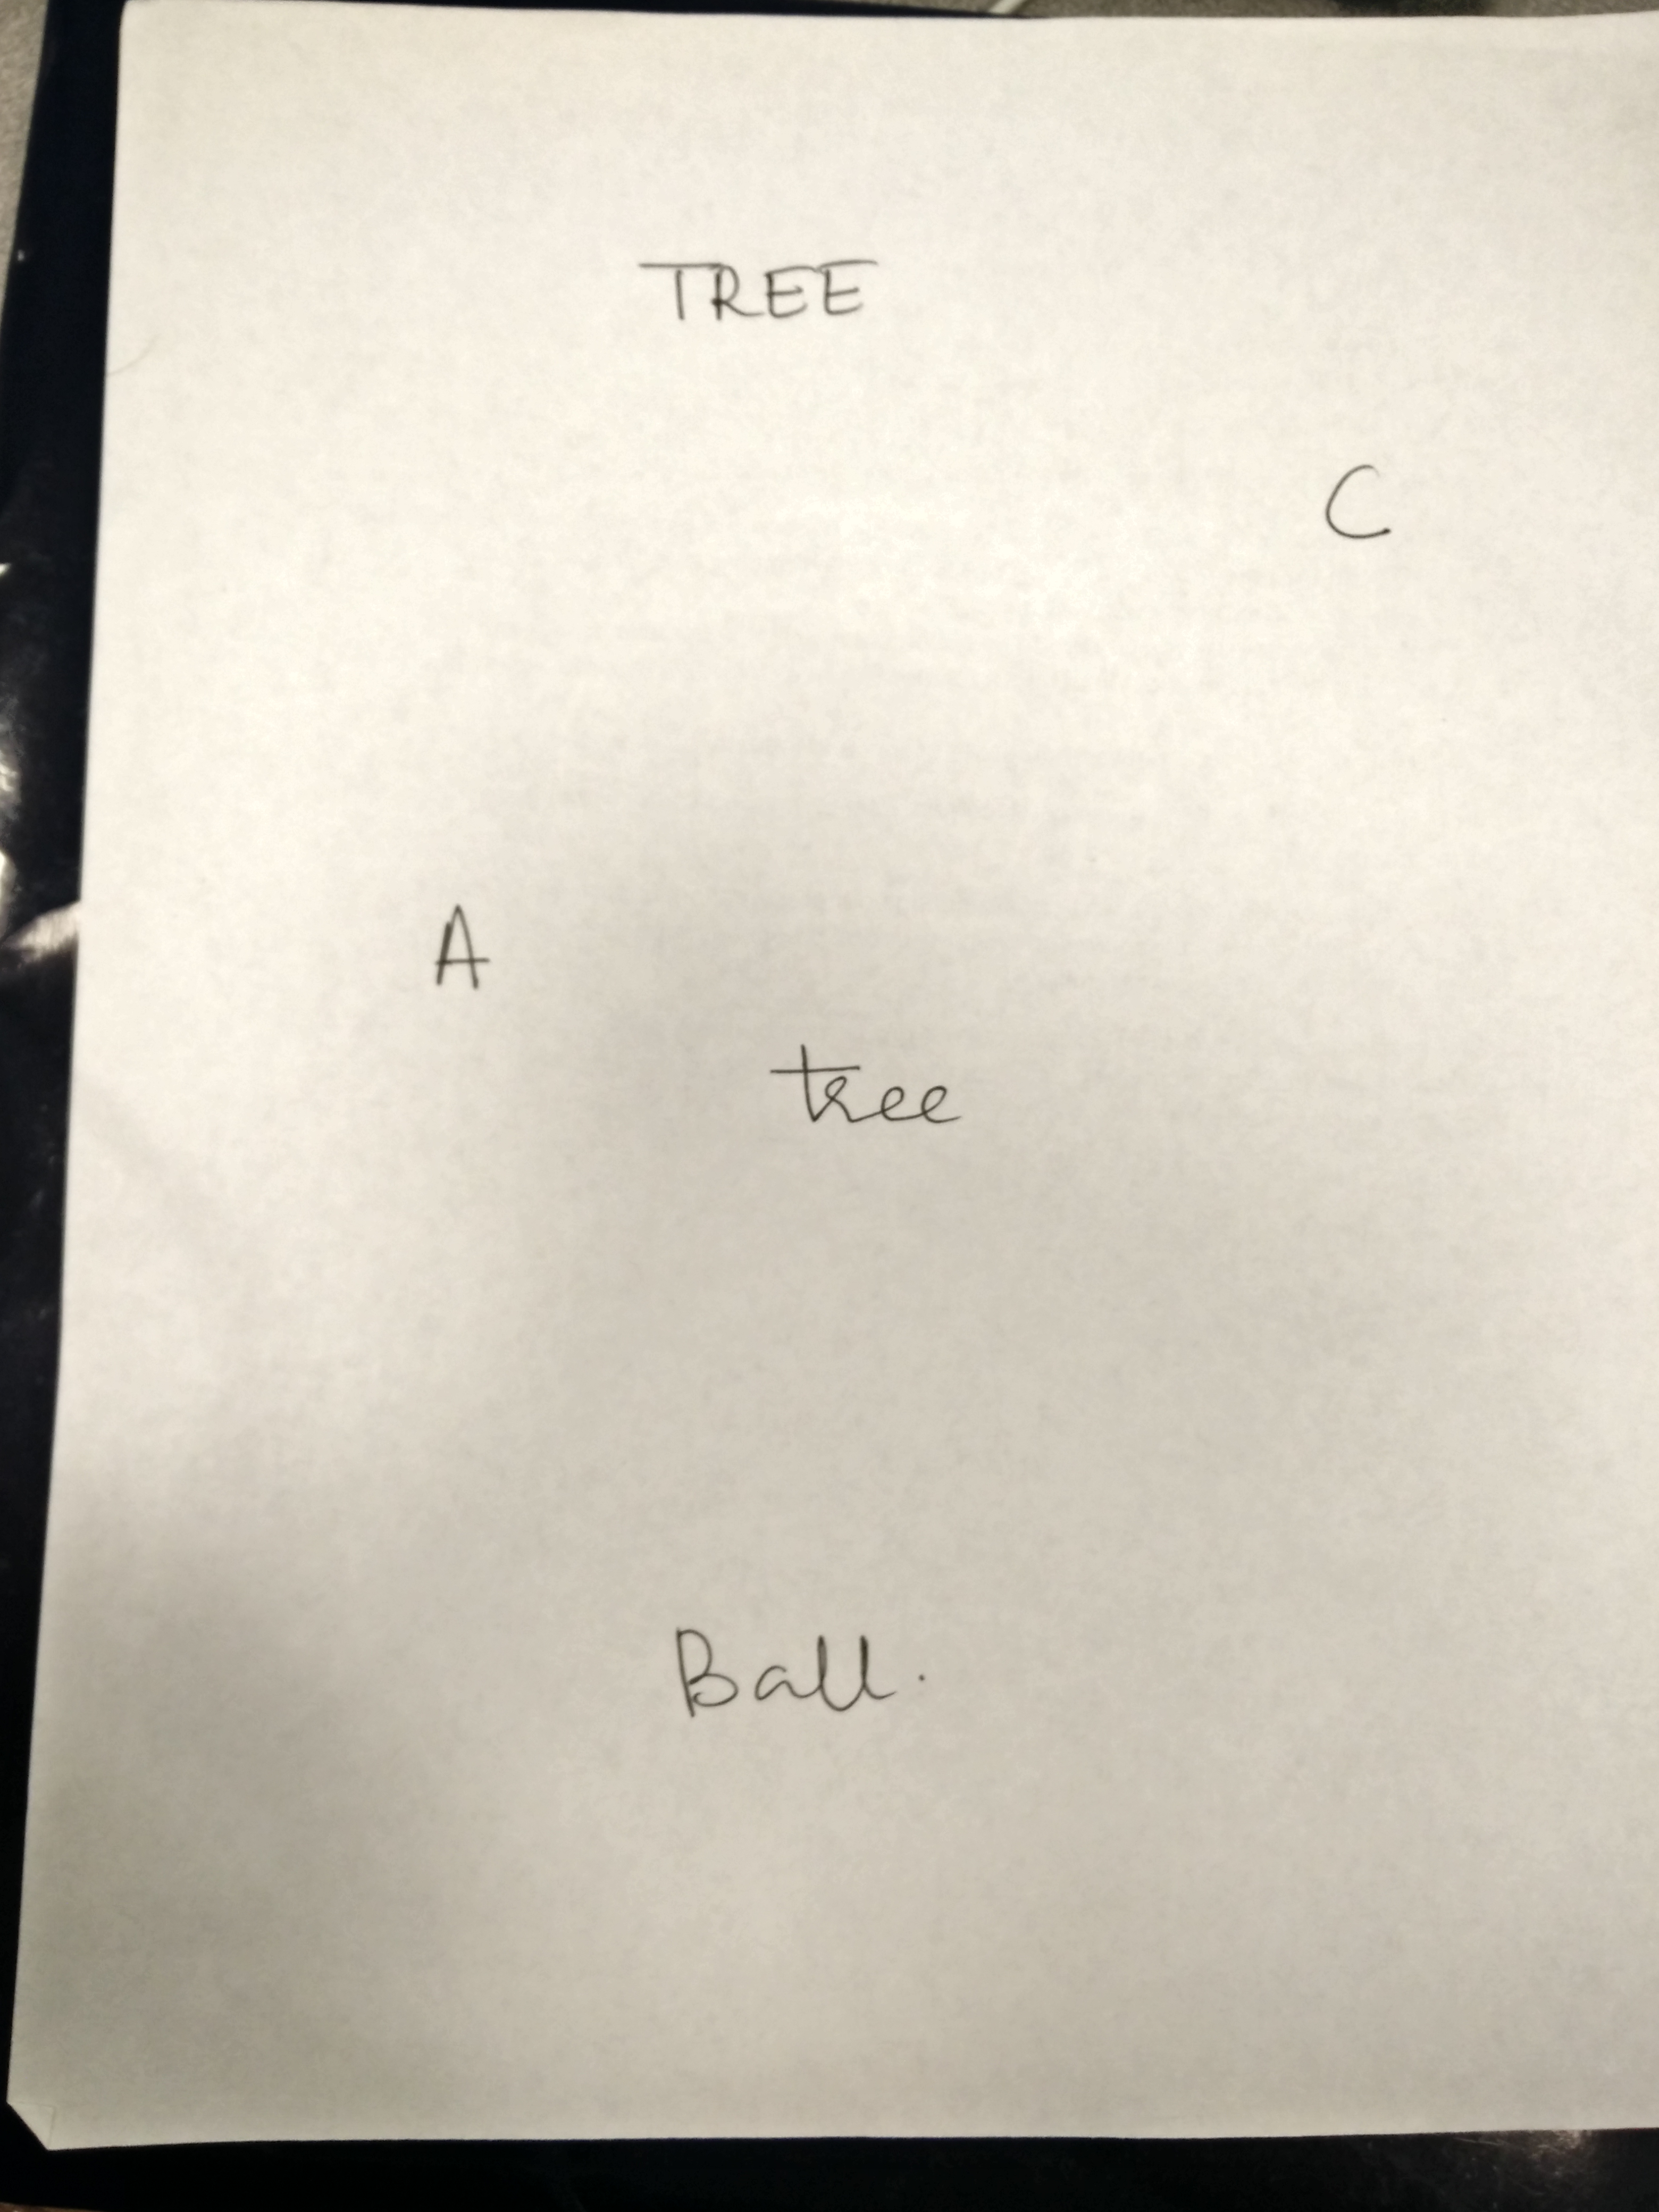 TREE
C
A
tree
Ball.